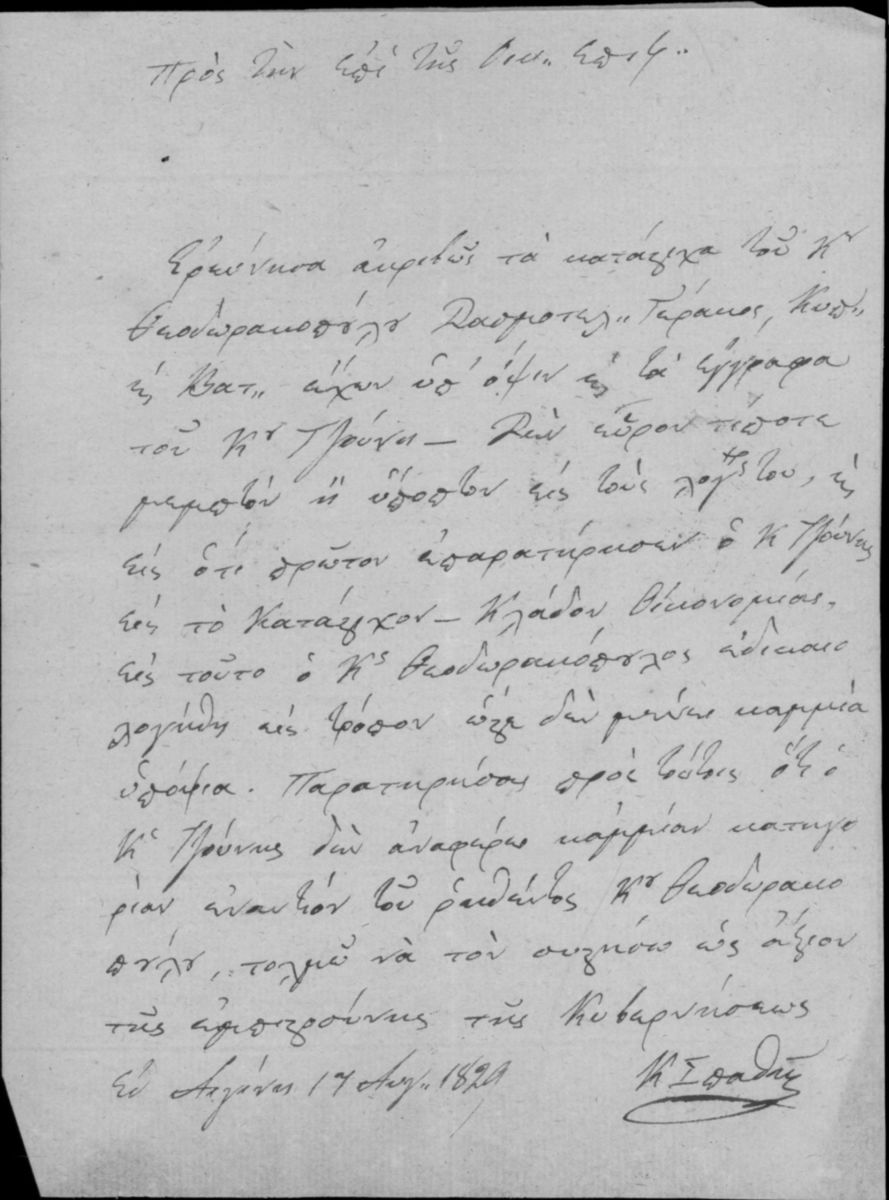 Πρὸς τὴν ἐπὶ τῆς Οικ,, Επιτ,,
Ἐρεύνησα ἀκριβῶς τὰ κατάστιχα τοῦ Κυ
Θεοδωρακοπούλου Δασμοτελ,, Γέρακος,
Βατ,, ἔχων ὑπ' ὄψιν καὶ τὰ ἔγγραφα
τοῦ Κυ Τζούνη — Δὲν εὗρον τίποτε
μεμπτὸν ἢ ὕποπτον εἰς τοὺς λογ/σμούς του, καὶ
εἰς ὅτι πρῶτον ἐπαρατήρησεν ὁ Κ Τζούνης
εἰς τὸ Κατάστιχον — Κλάδον Οἰκονομίας,
εἰς τοῦτο ὁ Κς Θεοδωρακόπουλος ἐδικαιο
λογήθη εἰς τρόπον ὥστε δὲν μένει καμμία
ὑποψία. Παρατηρήσας πρὸς τούτοις ὅτι ὁ
Κς Τζούνης δὲν ἀναφέρει καμμίαν κατηγο
ρίαν ἐναντίον τοῦ ῥηθέντος Κυ Θεοδωρακο
πούλου, τολμῶ νὰ τὸν συστήσω ὡς ἄξιον
τῆς ἐμπιστοσύνης τῆς Κυβερνήσεως
Ἐν Αἰγίνῃ 17 Αὐγ,, 1829 Κ Σπαθῆς